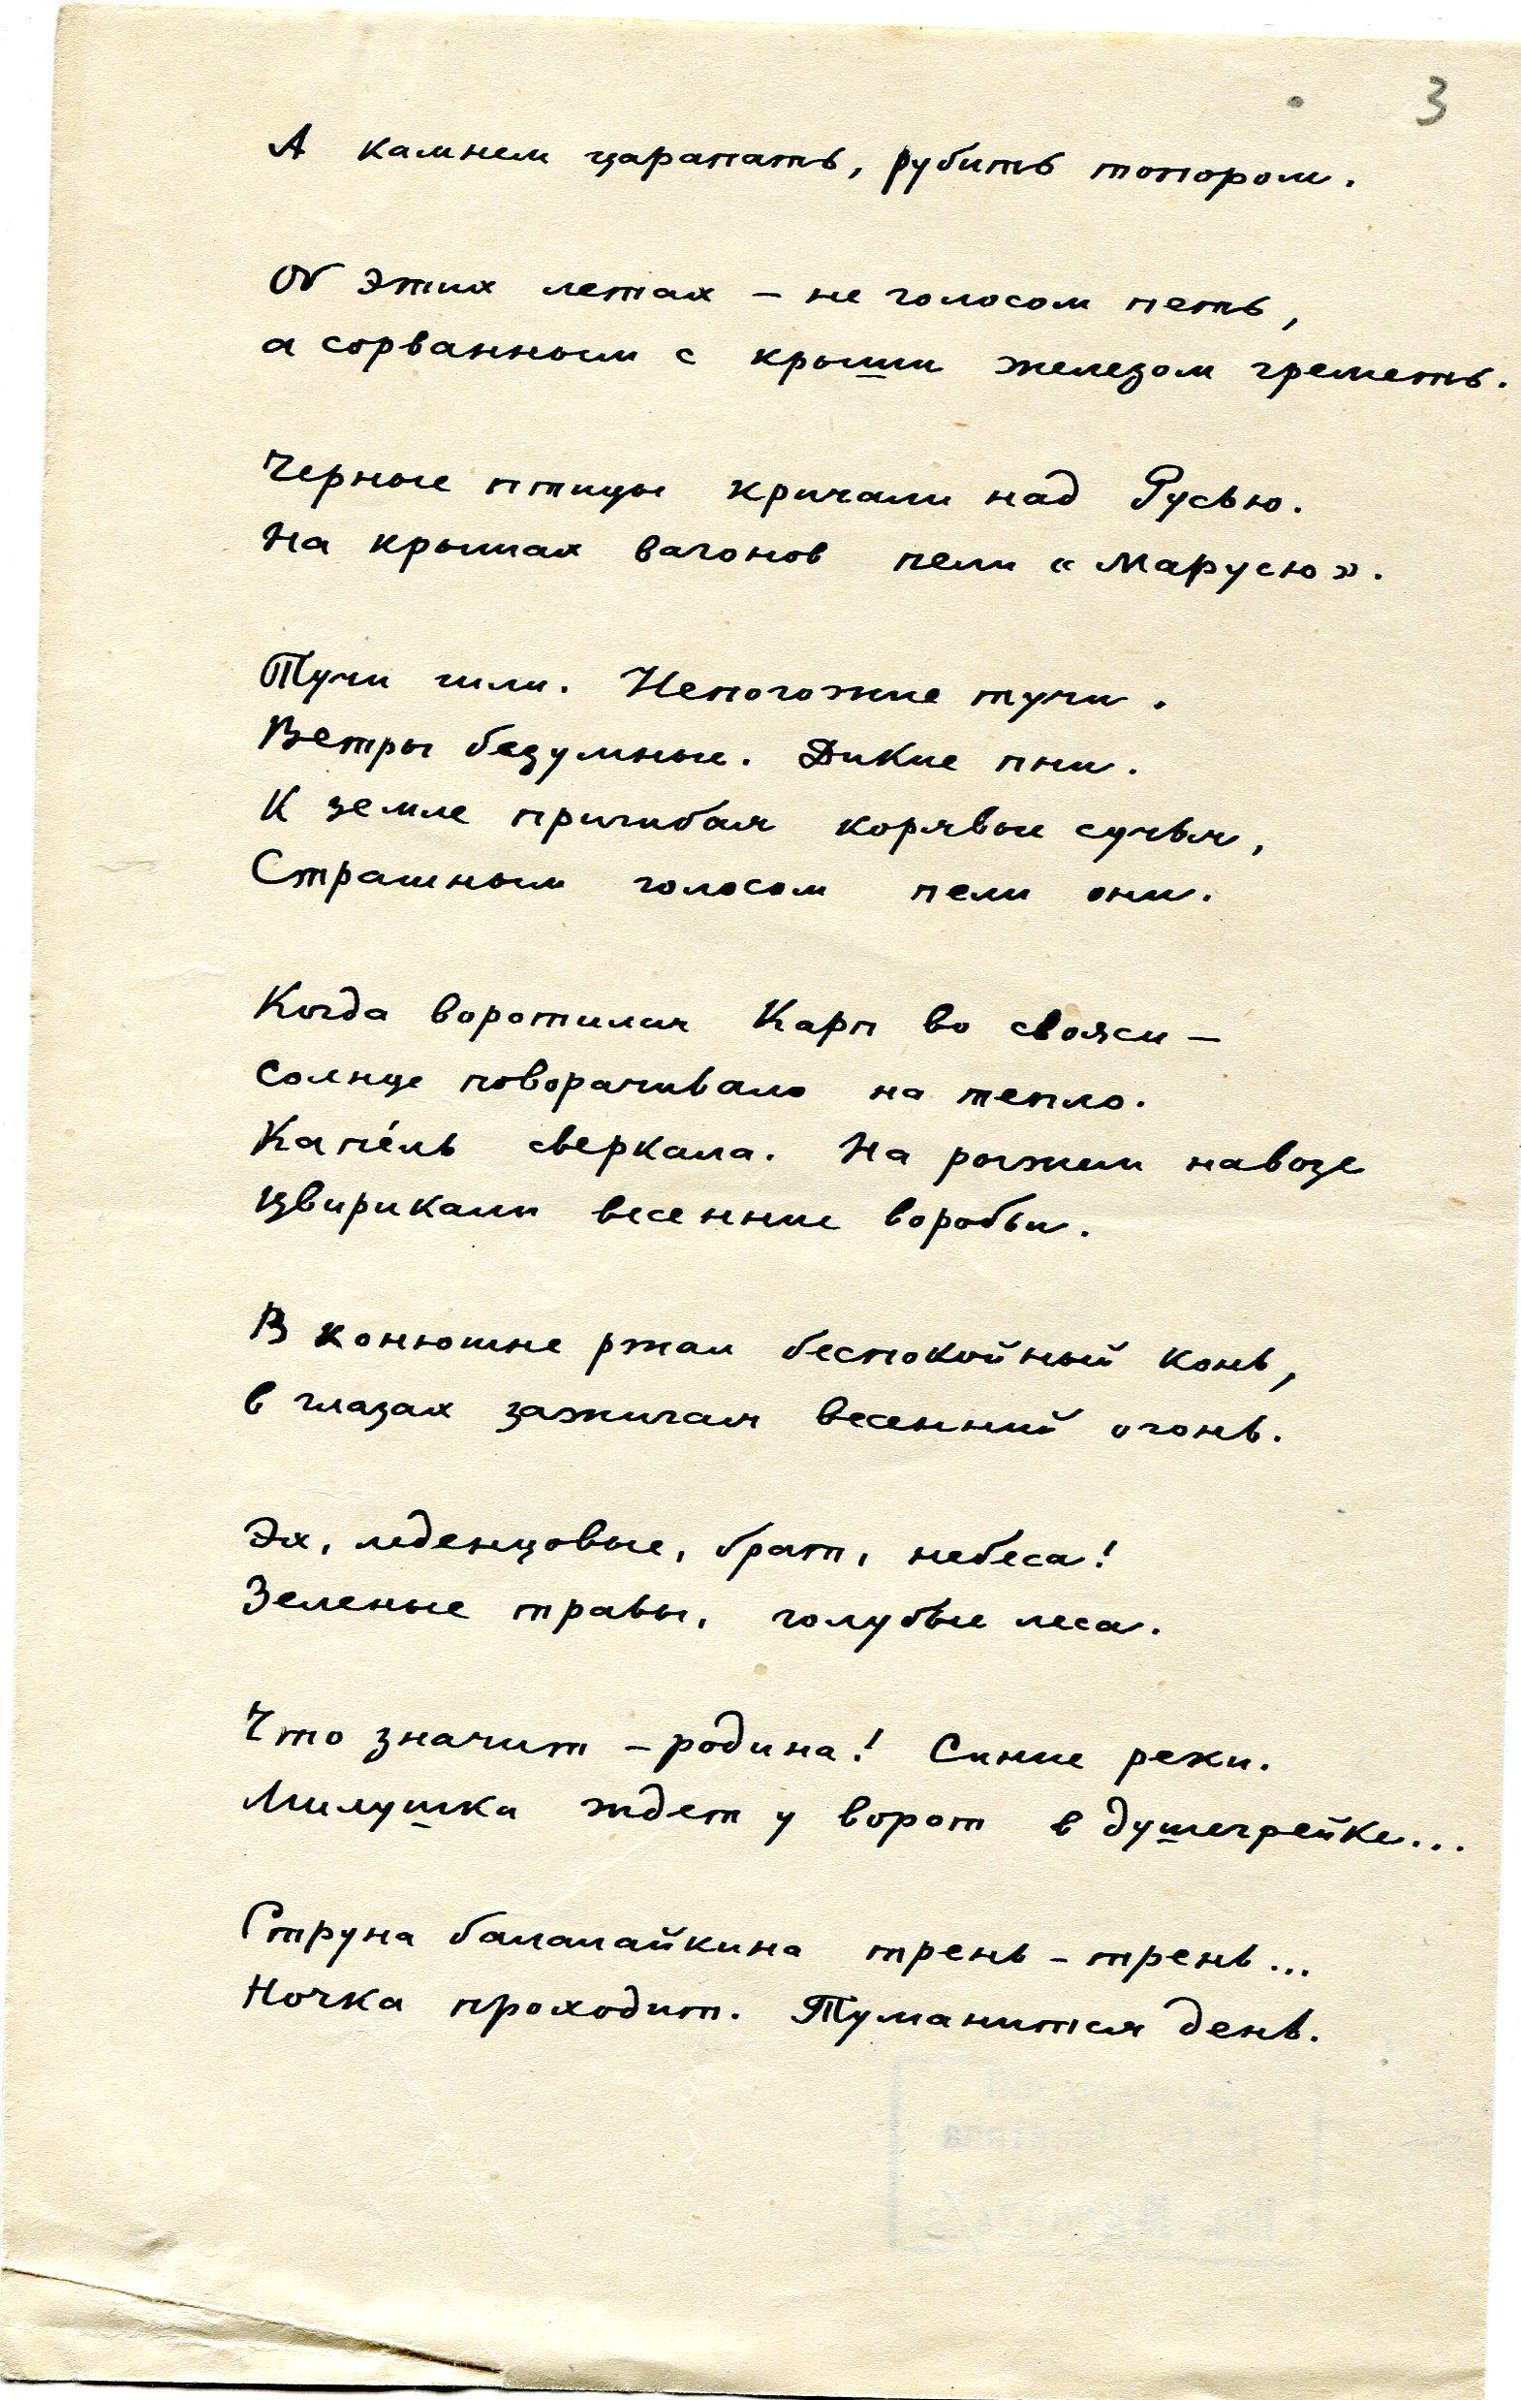 3
А камнем царапать, рубить топором.
Об этих летах – не голосом петь,
а сорванным с крыши железом греметь.
Черные птицы кричали над Русью.
На крышах вагонов пели «Марусю».
Тучи шли. Непогожие тучи.
Ветры безумные. Дикие пни.
К земле пригибая корявые сучья,
Страшным голосом пели они.
Когда воротился Карп во свояси –
солнце поворачивало на тепло.
Капе́ль сверкала. На рыжем навозе
цвирикали весенние воробьи.
В конюшне ржал беспокойный конь,
в глазах зажигая весенний огонь.
Эх, леденцовые, брат, небеса!
Зеленые травы, голубые леса.
Что значит – родина! Синие реки.
Милушка ждет у ворот в душегрейке...
Струна балалайкина трень – трень...
Ночка проходит. Туманится день.